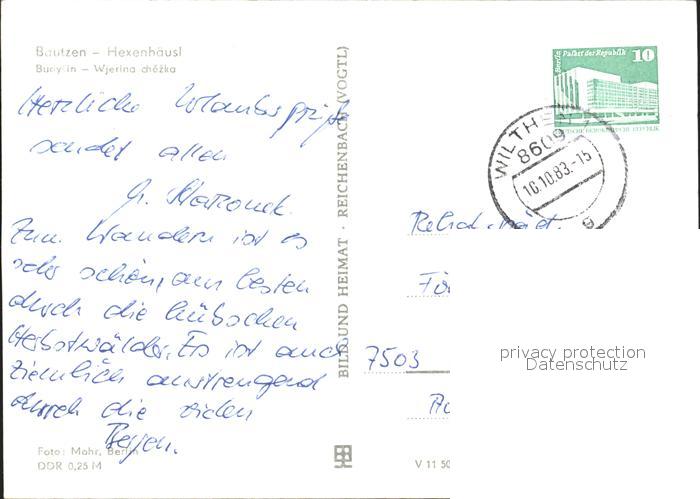 Bautzen – Hexenhäusl
Budyšin – Wjerina chěžka
Herzliche Urlaubsgrüße
sendet allen
Zum Wandern ist es
sehr schön, am besten
durch die hübschen
Herbstwälder. Es ist auch
ziemlich anstrengend
durch die vielen
Bergen.
Foto: Mohr, Berlin
DDR 0,25 M
BILD UND HEIMAT · REICHENBACH (VOGTL)
Berlin Palast der Republik 10
DEUTSCHE DEMOKRATISCHE REPUBLIK
WILTHEN 1
8609
16.10.83.-15
g
7503
privacy protection
Datenschutz
V 11 50